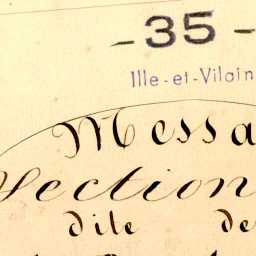 - 35 -
Ille-et-Vilain
Messa
Section
dite de